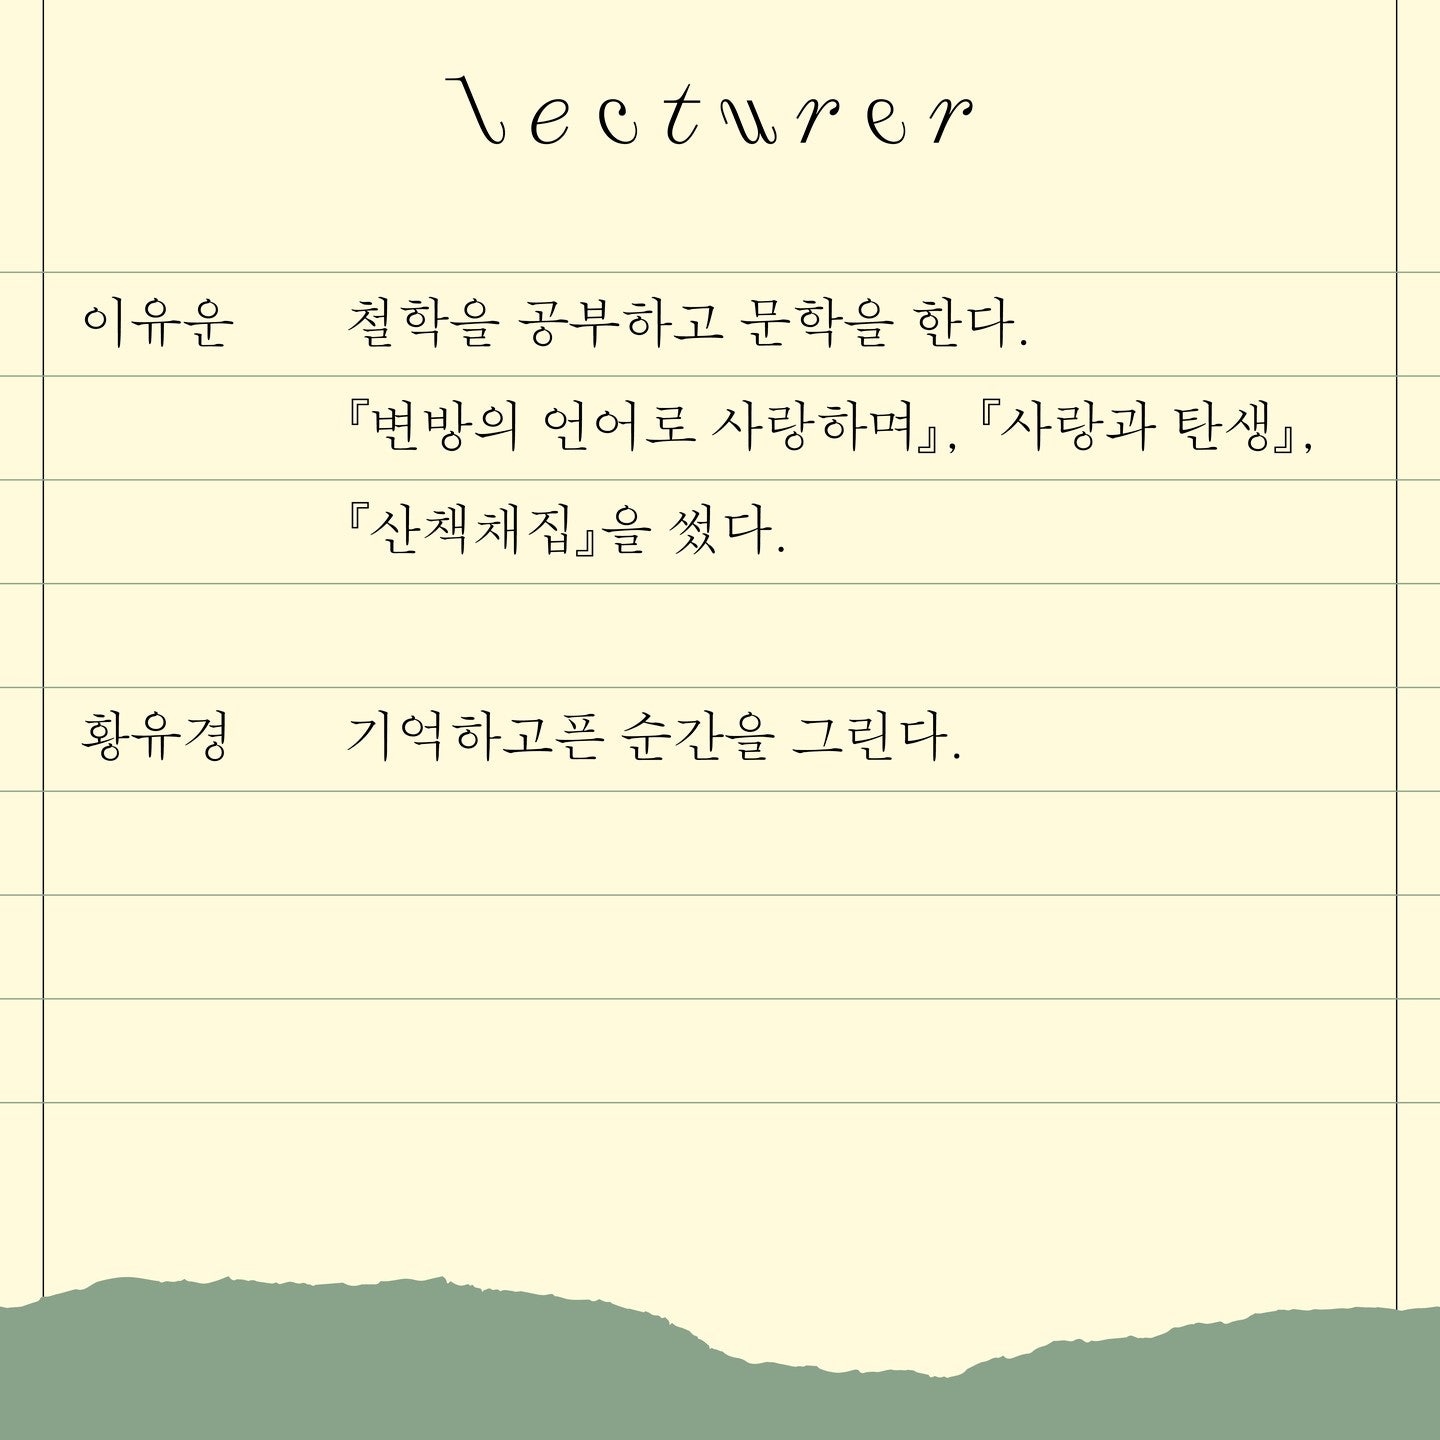 lecturer
이유운 철학을 공부하고 문학을 한다.
『변방의 언어로 사랑하며』, 『사랑과 탄생』,
『산책채집』을 썼다.
황유경 기억하고픈 순간을 그린다.